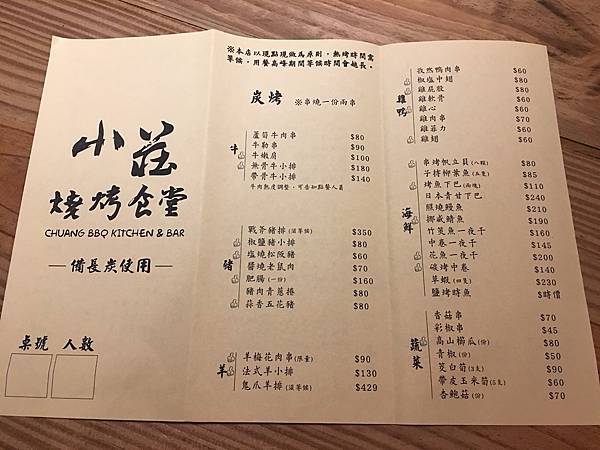 小莊
燒烤食堂
CHUANG BBQ KITCHEN & BAR
備長炭使用
桌號 人數
※本店以現點現做為原則，熱烤時間需
等候，用餐高峰期間等候時間會越長。
炭烤 ※串燒一份兩串
牛
蘆筍牛肉串 $80
牛勒串 $90
牛嫩肩 $100
無骨牛小排 $180
帶骨牛小排 $140
牛肉熟度調整，可告知點餐人員
豬
戰斧豬排(須等候) $350
椒鹽豬小排 $80
塩燒松阪豬 $60
醬燒老鼠肉 $70
肥腸(一份) $160
豬肉青蔥捲 $80
蒜香五花豬 $80
羊
羊梅花肉串(限量) $90
法式羊小排 $130
鬼爪羊排(須等候) $429
雞鴨
孜然鴨肉串 $60
椒塩中翅 $80
雞屁股 $80
雞軟骨 $60
雞心 $60
雞肉串 $70
雞菲力 $60
雞翅 $60
海鮮
串烤帆立貝(八顆) $80
子持柳葉魚(五隻) $85
烤魚下巴(兩塊) $110
日本青甘下巴 $240
照燒鰻魚 $210
挪威鯖魚 $190
竹筴魚一夜干 $160
中卷一夜干 $145
花魚一夜干 $200
碳烤中卷 $140
草蝦(四隻) $230
鹽烤時魚 $時價
蔬菜
香菇串 $70
彩椒串 $45
高山櫛瓜(份) $80
青椒(份) $50
筊白筍(3支) $90
帶皮玉米筍(5支) $60
杏鮑菇(份) $70